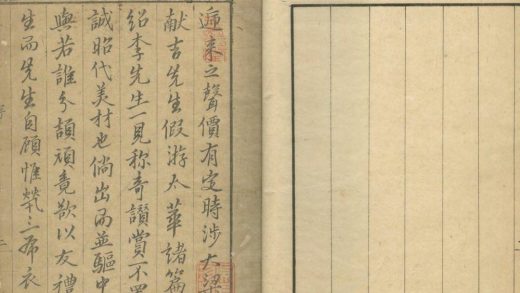 迩来之聲價有定時涉大梁
献吉先生假游太華諸篇
绍李先生一見称奇讃賞不置
誠昭代美材也倘出而並驅中
與若誰分頡頏竟欲以友禮
生而先生自顧惟煢〻布衣